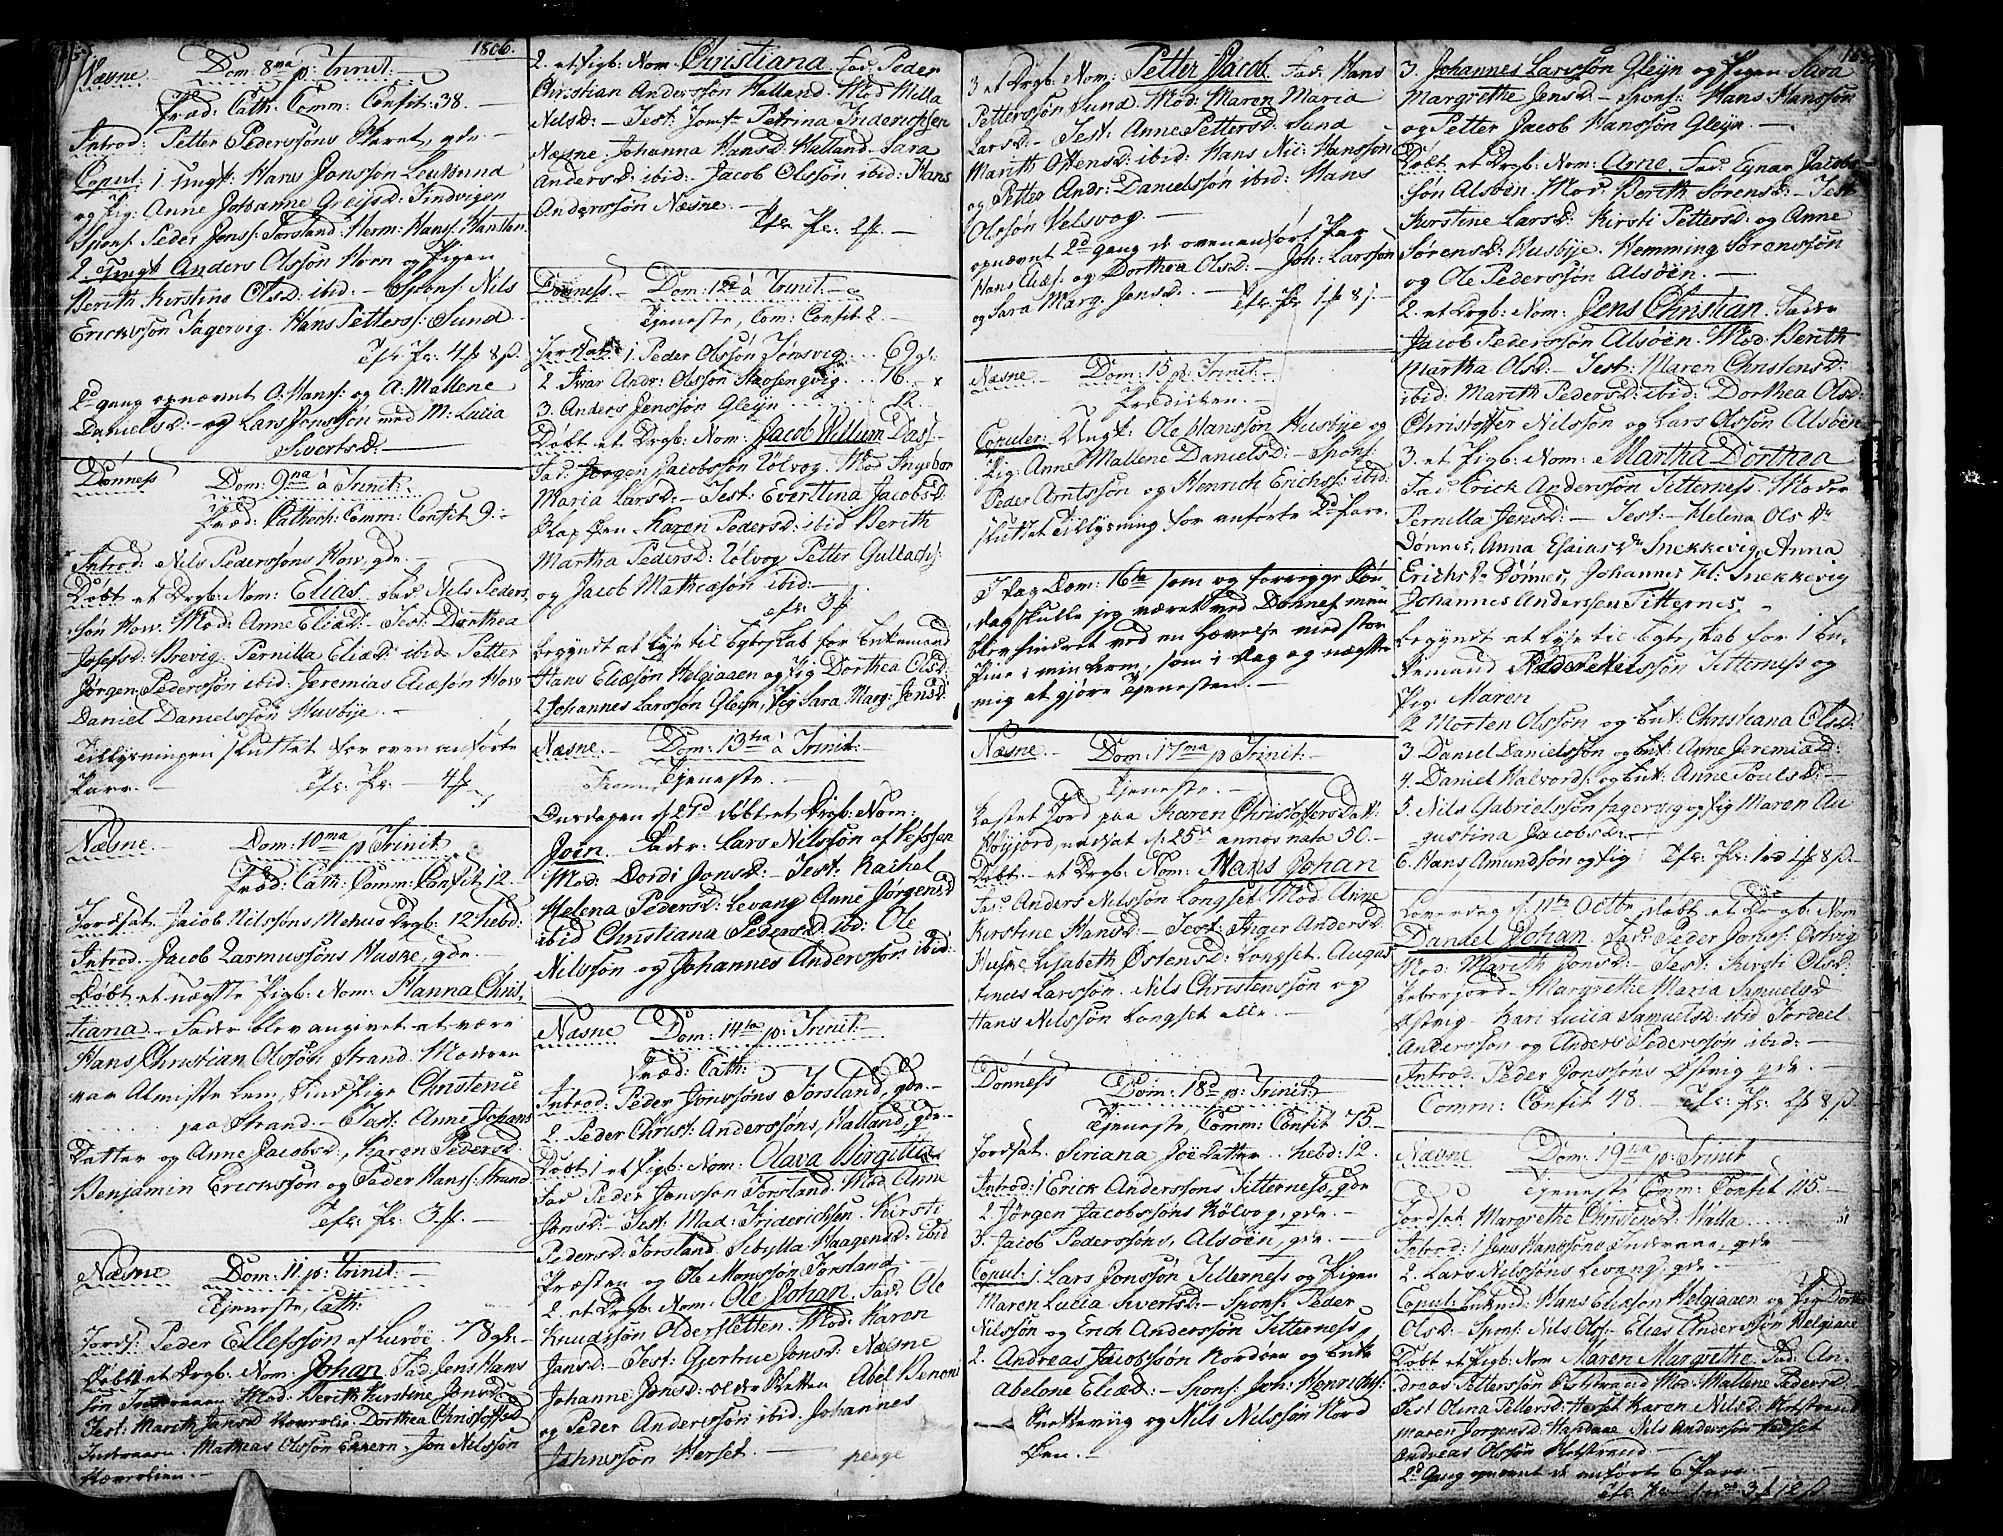 1806.
Næsne Dom: 8va p: Trinit:
Præd: Cath: Comm: Confit: 38. —
Introd: Petter Pederssøns Skaret, gde. —
Copul: 1. Ungk: Hans Jonssøn
og Pig: Anne Johanne Greijsd: Findvigen
Spons: Peder Jons: Forsland. Herm: Hans:
2. Ungk: Anders Olssøn Horn og Pigen
Berith Kirstine Olsd: ibid. — Spons: Nils
Erickssøn Fagervig. Hans Petters: Sund —
Tfr: Pr: 4 8 ß.
2d gang opnævnt O. Hans: og A. Mallene
Danielsd: — og Lars Jonssøn med M: Lucia
Sivertsd: —
Dønness Dom: 9na à Trinit:
Præd: Cathech: Comm: Confit: 9 —
Introd: Nils Pederssøns How, gde. —
Døbt et Drgb: Nom: Elias. Fad: Nils Peders
søn How. Mod: Anne Eliæd: — Test: Dorthea
Josefsd: Brevig. Pernilla Eliæd: ibid. Petter
Jørgen Pederssøn ibid: Jeremias Eliæsøn How
Daniel Danielssøn Husbije. —
Tillysningen sluttet for ovenanførte
Parr. — Tfr: Pr: 4
Næsne Dom: 10ma p Trinit
Præd: Cath: Comm: Confit: 12. —
Jordsat Jacob Nilssøns Drgb: 12 hebd:
Introd. Jacob Rasmussøns Huske, gde. —
Døbt et uægte Pigb: Nom: Hanna Chris,
tiana — Fader blev angivet at være
Hans Christian Olssøn Strand. Moderen
var Almiste Lem, Pige Christense
paa Strand. — Test: Anne Johans
Datter og Anne Jacobsd:, Karen Pedersd:
Benjamin Erickssøn og Peder Hans: Strand
Tfr: Pr: 3
Næsne Dom: 11 p: Trinit: —
Tjeneste, Cath:
Jords: Peder Ellefssøn af Lurøe. 78 gl: —
Døbt et Drgb: Nom: Johan. Fad: Jens Hans
søn Inderaaen Mod: Berith Kirstine Jonsd:
Test: Marith Jansd: Dorthea Christoffd:
Inderaaen. Mathias Olssøn Jon Nilssøn
2. et Pigb: Nom: Christiana. Fad: Peder
Christian Anderssøn Halland. Mod Milla
Nilsd: — Test: Jomfr Petrina Friderichsen
Næsne. Johanna Hansd: Halland. Sara
Andersd: ibid: Jacob Olssøn ibid: Hans
Anderssøn Næsne. —
Tfr: Pr: 2 —
Dønness — Dom: 12te à Trinit: —
Tjeneste, Com: Confit 8 —
Jordsat: 1. Peder Olssøn . . 69 gl:
2. Ivar Andr: Olssøn . . 16
3. Anders Jenssøn Gleijn 12
Døbt et Drgb: Nom: Jacob Willum Dass —
Fad: Jørgen Jacobssøn Kölvog. Mod Ingebor
Maria Larsd: — Test: Everttina Jacobsd:
Karen Pedersd: ibid Berith
Martha Pedersd: Kölvog Petter Gullachs:
og Jacob Mathiasøn ibid: —
Tfr 3
Begyndt at lyse til Egteskab for Enkemand
Hans Eliæsøn Helgiaaen og Pig Dorthea Olsd:
2 Johannes Larssøn Gleijn, Pig Sara Marg: Jensd:
Næsne. — Dom: 13tia à Trinit: —
Tjeneste. —
Onsdagen d: 27d døbt et Drgb: Nom:
Joen. Fader: Lars Nilssøn af
Mod: Dordi Jonsd: — Test: Rachel
Helena Pedersd: Levang Anne Jørgensd
ibid Christiana Pedersd: ibd: Ole
Nilssøn og Johannes Anderssøn ibid:
Næsne Dom: 14ta p: Trinit: —
Præd: Cath:
Introd: Peder Jonssøns Forsland, gde. —
2. Peder Christ: Anderssøns, Halland, g
Døbt 1 et Pigb: Nom: Olava Birgitte
Fad Peder Jonssøn Forsland. Mod Anne
Jonsd: — Test: Mad: Friderichsen. Kirsti
Pedersd: Forsland. Sibylla Haagensd: ibid
Præsten og Ole Monssøn Forsland. —
2. et Drgb: Nom: Ole Johan. Fad: Ole
Knudssøn Oldersletten. Mod: Karen
Jansd: — Test: Gjertrue Jonsd: Næsne
Johanne Jonsd: Oldersletten Abel Benoni
og Peder Anderssøn ibid: Johannes
Johnssøn Herset. — penge
3 et Drgb: Nom: Petter Jacob. Fad: Hans
Petterssøn Sund. Mod: Maren Maria
Larsd: — Test: Anne Pettersd: Sund
Marith Ostensd: ibid: Hans Nic: Hanssøn
og Petter Andr: Danielssøn ibid: Hans
Olssøn Velsvog. —
opnævnt 2d gang de ovenanført Par
Hans Eliæs: og Dorthea Olsd: — Joh: Larssøn
og Sara Marg: Jensd: — Tfr: Pr 1 8 ß —
Næsne. — Dom: 15 p: Trinit: —
Prædiken. —
Copuler: Ungk: Ole Hanssøn Husbije og
Pig: Anne Mallene Danielsd: — Spons:
Peder Arntssøn og Henrich Erichs: ibid:
sluttet Tillysning for anførte 2d Parr. —
I Dag Dom: 16te som og forrigge Søn
dag skulle jeg været ved Dønnes. men
blev hindret ved en Hævelse med stor
Pine i min arm, som i Dag og nægtte
mig at gjøre Tjenesten. —
Næsne — Dom: 17ma p Trinit: —
Tjeneste. —
Kastet Jord paa Karen Christoffersdatt:
Høyjord, nedsat d: 25de annos nata 50. —
Døbt — et Drgb: Nom: Hans Johan
Fad: Anders Nilssøn Longset. Mod: Anne
Kirstine Hansd: — Test: Inger Andersd:
Huske. Lisabeth Østensd: Longset. Augus
tinus Larssøn. Nils Christenssøn og
Hans Nilssøn Longset alle. —
Dønness Dom: 18d p: Trinit:
Tjeneste, Comm: Confit 75. —
Jordsat. Siriana Joëdatter . . hebd: 12.
Introd: 1 Erick Anderssøns Titterness, gde
2. Jørgen Jacobssøns Kölvog, gde. —
3. Jacob Pederssøns, Alsøen, gde. —
Copul: 1. Lars Jonssøn Titterness og Pigen
Maren Lucia Sivertsd: — Spons: Peder
Nilssøn og Erich Anderssøn Titterness
2. Andreas Jacobssøn Nordøen og Enke
Abelone Eliæd: — Spons: Joh: Henrichs:
Snekkeviig og Nils Nilssøn Nord
Øen. —
3. Johannes Larssøn Gleijn og Pigen Sara
Margrethe Jensd: — Spons: Hans Hanssøn
og Petter Jacob Hanssøn Gleijn. —
Døbt et Drgb: Nom: Arne. Fad: Eijnar Jacobs
søn Alsøen. Mod: Berith Sørensd: — Test
Kirstine Larsd: Kirsti Pettersd: og Anne
Sørensd: Husbije. Hemming Sørenssøn
og Ole Pederssøn Alsøen. —
2. et Drgb: Nom: Jens Christian. Fader
Jacob Pederssøn Alsøen. Mod: Berith
Martha Olsd: — Test: Maren Christensd:
ibid: Marith Pedersd: ibid: Dorthea Olsd:
Christoffer Nilssøn og Lars Olssøn Alsøen
3 et Pigb: Nom: Martha Dorthea
Fad: Erick Anderssøn Titterness. Moder
Pernilla Jensd: — Test: Helena Ols Dr
Dønnes, Anna Esaias Dr Snekkevig, Anna
Erichs Dr Dønnes, Johannes H: Snekkevig
Johannes Anderssen Titternes. —
Begyndt at lyse til Egteskab for 1 En,
kemand Peder Nilssøn Titterness og
Pig Maren
2 Morten Olssøn og Enk: Christiana Olsd:
3 Daniel Danielssøn og Enk: Anne Jeremiæd:
4. Daniel Halvords: og Enk: Anne Poulsd: —
5. Nils Gabrielssøn Fagervig og Pig Maren Au
gustina Jacobsd: —
6. Hans Amundsøn og Pig Tfr: Pr: 1 8 ß. —
Loverdag d: 11te Octbr døbt et Drgb: Nom
Daniel Johan. Fad: Peder Jons: Østvig
Mod: Marith Jonsd: — Test: Kirsti Olsd:
Leberfjord — Margrethe Maria Samuelsd
Østvig. Kari Lucia Samuelsd: ibid
Anderssøn og Anders Pederssøn ibid: —
Introd: Peder Jonssøns Østvig gde. —
Comm: Confit 48. — Tfr: Pr: 2 8 ß —
Næsne Dom: 19na p: Trinit
Tjeneste Comm: Confit 115 —
Jordsat Margrethe Christensd: 51
Introd: 1 Jens Hanssøns Inderaae, gde —
2. Lars Nilssøns Levang, gde. —
Copul: Enkmd: Hans Eliæsøn Helgiaaen og Pig Dorthe
Olsd: — Spons: Nils Ols: — Elias Anderssøn Helgiaae
Døbt et Pigb: Nom Maren Margrethe. Fad: An
dreas Petterssøn Mod: Mallene Pedersd
Test Olina Pettersd: Herset Karen Nilsd:
Maren Jorgensd: Nils Anderssøn
Andreas Olssøn —
2d Gang opnævnt de anførte 6 Parr. —